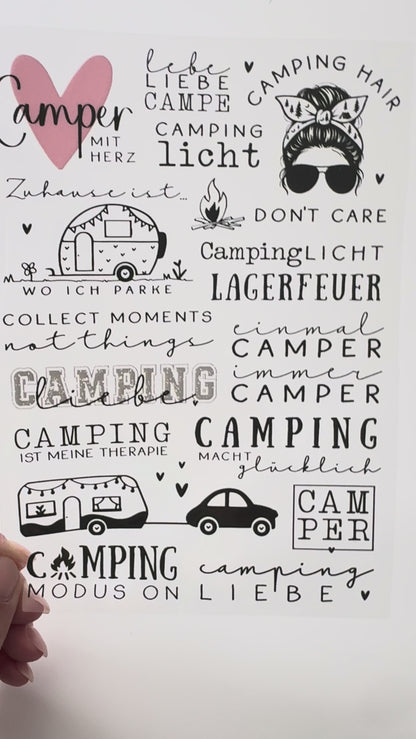 Camper
MIT
HERZ
lebe
LIEBE
CAMPE
CAMPING
licht
CAMPING HAIR
DON'T CARE
Zuhause ist...
WO ICH PARKE
CampingLICHT
LAGERFEUER
COLLECT MOMENTS
not things
einmal
CAMPER
immer
CAMPER
CAMPING
liebe
CAMPING
IST MEINE THERAPIE
CAMPING
MACHT
glücklich
CAM
PER
CAMPING
MODUS ON
camping
LIEBE